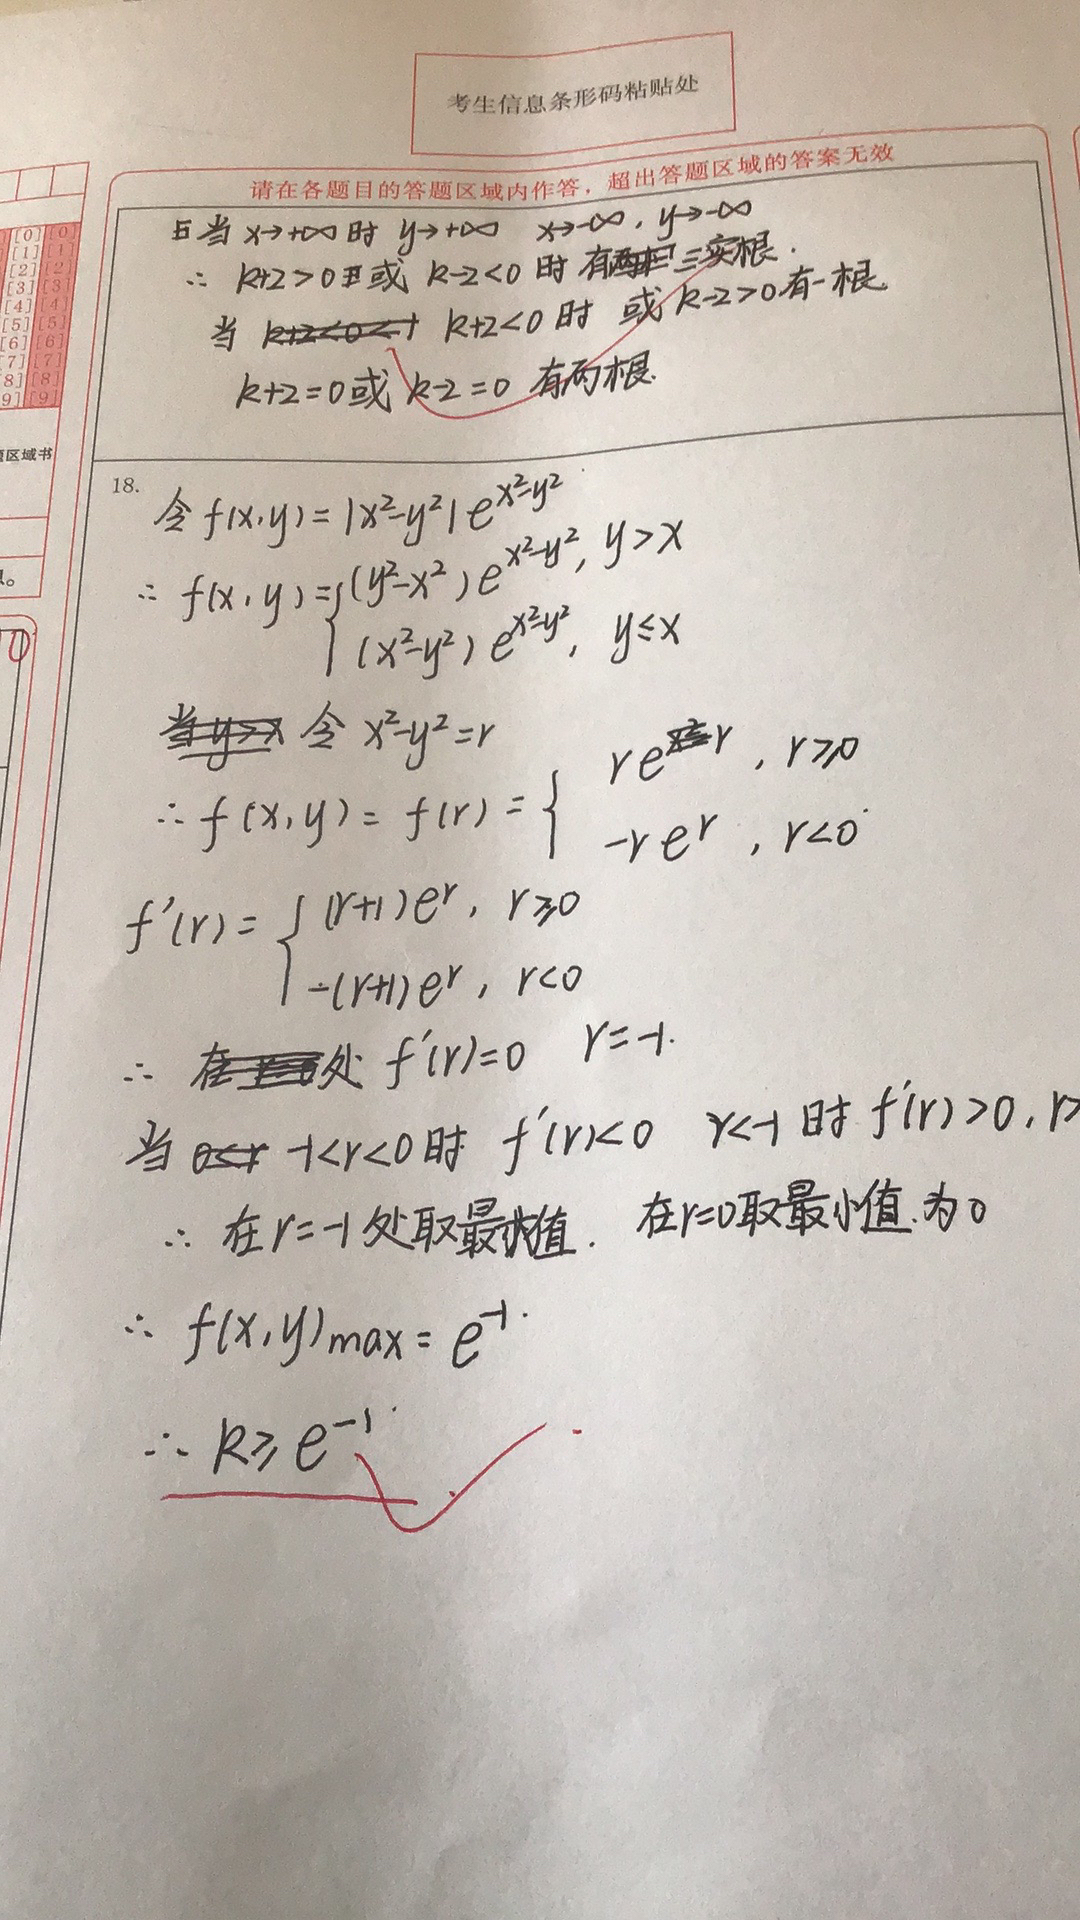 考生信息条形码粘贴处
请在各题目的答题区域内作答，超出答题区域的答案无效
[0] [0]
[1] [1]
[2] [2]
[3] [3]
[4] [4]
[5] [5]
[6] [6]
[7] [7]
[8] [8]
9] [9]
区域书
且当 x→+∞ 时 y→+∞ x→-∞, y→-∞
∴ k+2>0 或 k-2<0 时 有三实根.
当 k+2<0 时 或 k-2>0 有一根
k+2=0 或 k-2=0 有两根.
18.
令 f(x,y)=|x²-y²|e^{x²-y²}
∴ f(x,y)={(y²-x²)e^{x²-y²}, y>x
(x²-y²)e^{x²-y²}, y≤x
令 x²-y²=r
∴ f(x,y)=f(r)={ re^r, r≥0
-re^r, r<0
f'(r)={ (r+1)e^r, r≥0
-(r+1)e^r, r<0
∴ 处 f'(r)=0 r=-1.
当 -1<r<0 时 f'(r)<0 r<-1 时 f'(r)>0, r>
∴ 在 r=-1 处取最大值. 在 r=0 取最小值.为0
∴ f(x,y)max=e^{-1}.
∴ k≥e^{-1}.